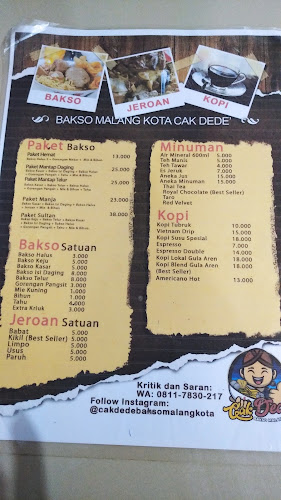 BAKSO
JEROAN
KOPI
BAKSO MALANG KOTA CAK DEDE'
Paket Bakso
Paket Hemat 13.000
Paket Mantap Daging 25.000
Paket Mantap Telur 25.000
Paket Manja 23.000
Paket Sultan 38.000
Bakso Satuan
Bakso Halus 3.000
Bakso Keju 5.000
Bakso Kasar 5.000
Bakso Isi Daging 8.000
Bakso Telur 8.000
Gorengan Pangsit
Mie Kuning
Bihun
Tahu
Extra Kriuk 3.000
Jeroan Satuan
Babat 5.000
Kikil (Best Seller) 5.000
Limpo 5.000
Usus 5.000
Paruh 5.000
Minuman
Air Mineral 600ml 5.000
Teh Manis 5.000
Teh Tawar
Es Jeruk 7.000
Aneka Jus 15.000
Aneka Minuman 15.000
Thai Tea
Royal Chocolate (Best Seller)
Taro
Red Velvet
Kopi
Kopi Tubruk 10.000
Vietnam Drip 15.000
Kopi Susu Spesial 18.000
Espresso 7.000
Espresso Double 14.000
Kopi Lokal Gula Aren 18.000
Kopi Blend Gula Aren 18.000
(Best Seller)
Americano Hot 13.000
Kritik dan Saran:
WA: 0811-7830-217
Follow Instagram:
@cakdedebaksomalangkota